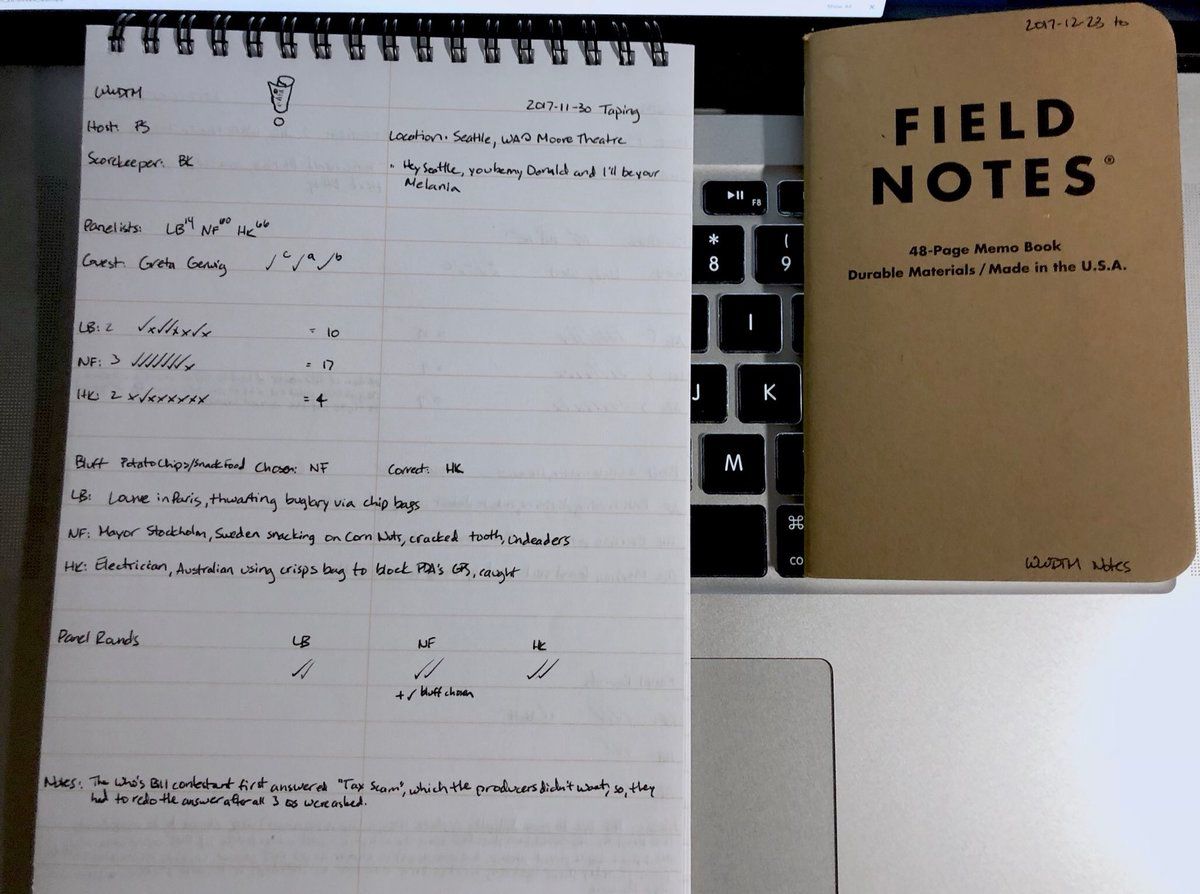 WWDTM
2017-11-30 Taping
Host: PS
Location: Seattle, WA Moore Theatre
Scorekeeper: BK
"Hey Seattle, you be my Donald and I'll be your
Melania
Panelists: LB14 NF60 HK66
Guest: Greta Gerwig ✓c ✓a ✓b
LB: 2 ✓x✓✓xx✓x = 10
NF: 3 ✓✓✓✓✓✓✓x = 17
HK: 2 x✓xxxxxx = 4
Bluff Potato Chips/Snack Food Chosen: NF Correct: HK
LB: Louvre in Paris, thwarting buglary via chip bags
NF: Mayor Stockholm, Sweden snacking on Corn Nuts, cracked tooth,
HK: Electrician, Australian using crisps bag to block PDA's GPS, caught
Panel Rounds LB NF HK
✓✓ ✓✓ ✓✓
+✓ bluff chosen
Notes: The Who's Bill contestant first answered "Tax Scam", which the producers didn't want, so, they
had to redo the answer after all 3 Qs were asked.
2017-12-23 to
FIELD
NOTES®
48-Page Memo Book
Durable Materials / Made in the U.S.A.
WWDTM Notes
F8
*
8
(
9
I
J
K
M
⌘